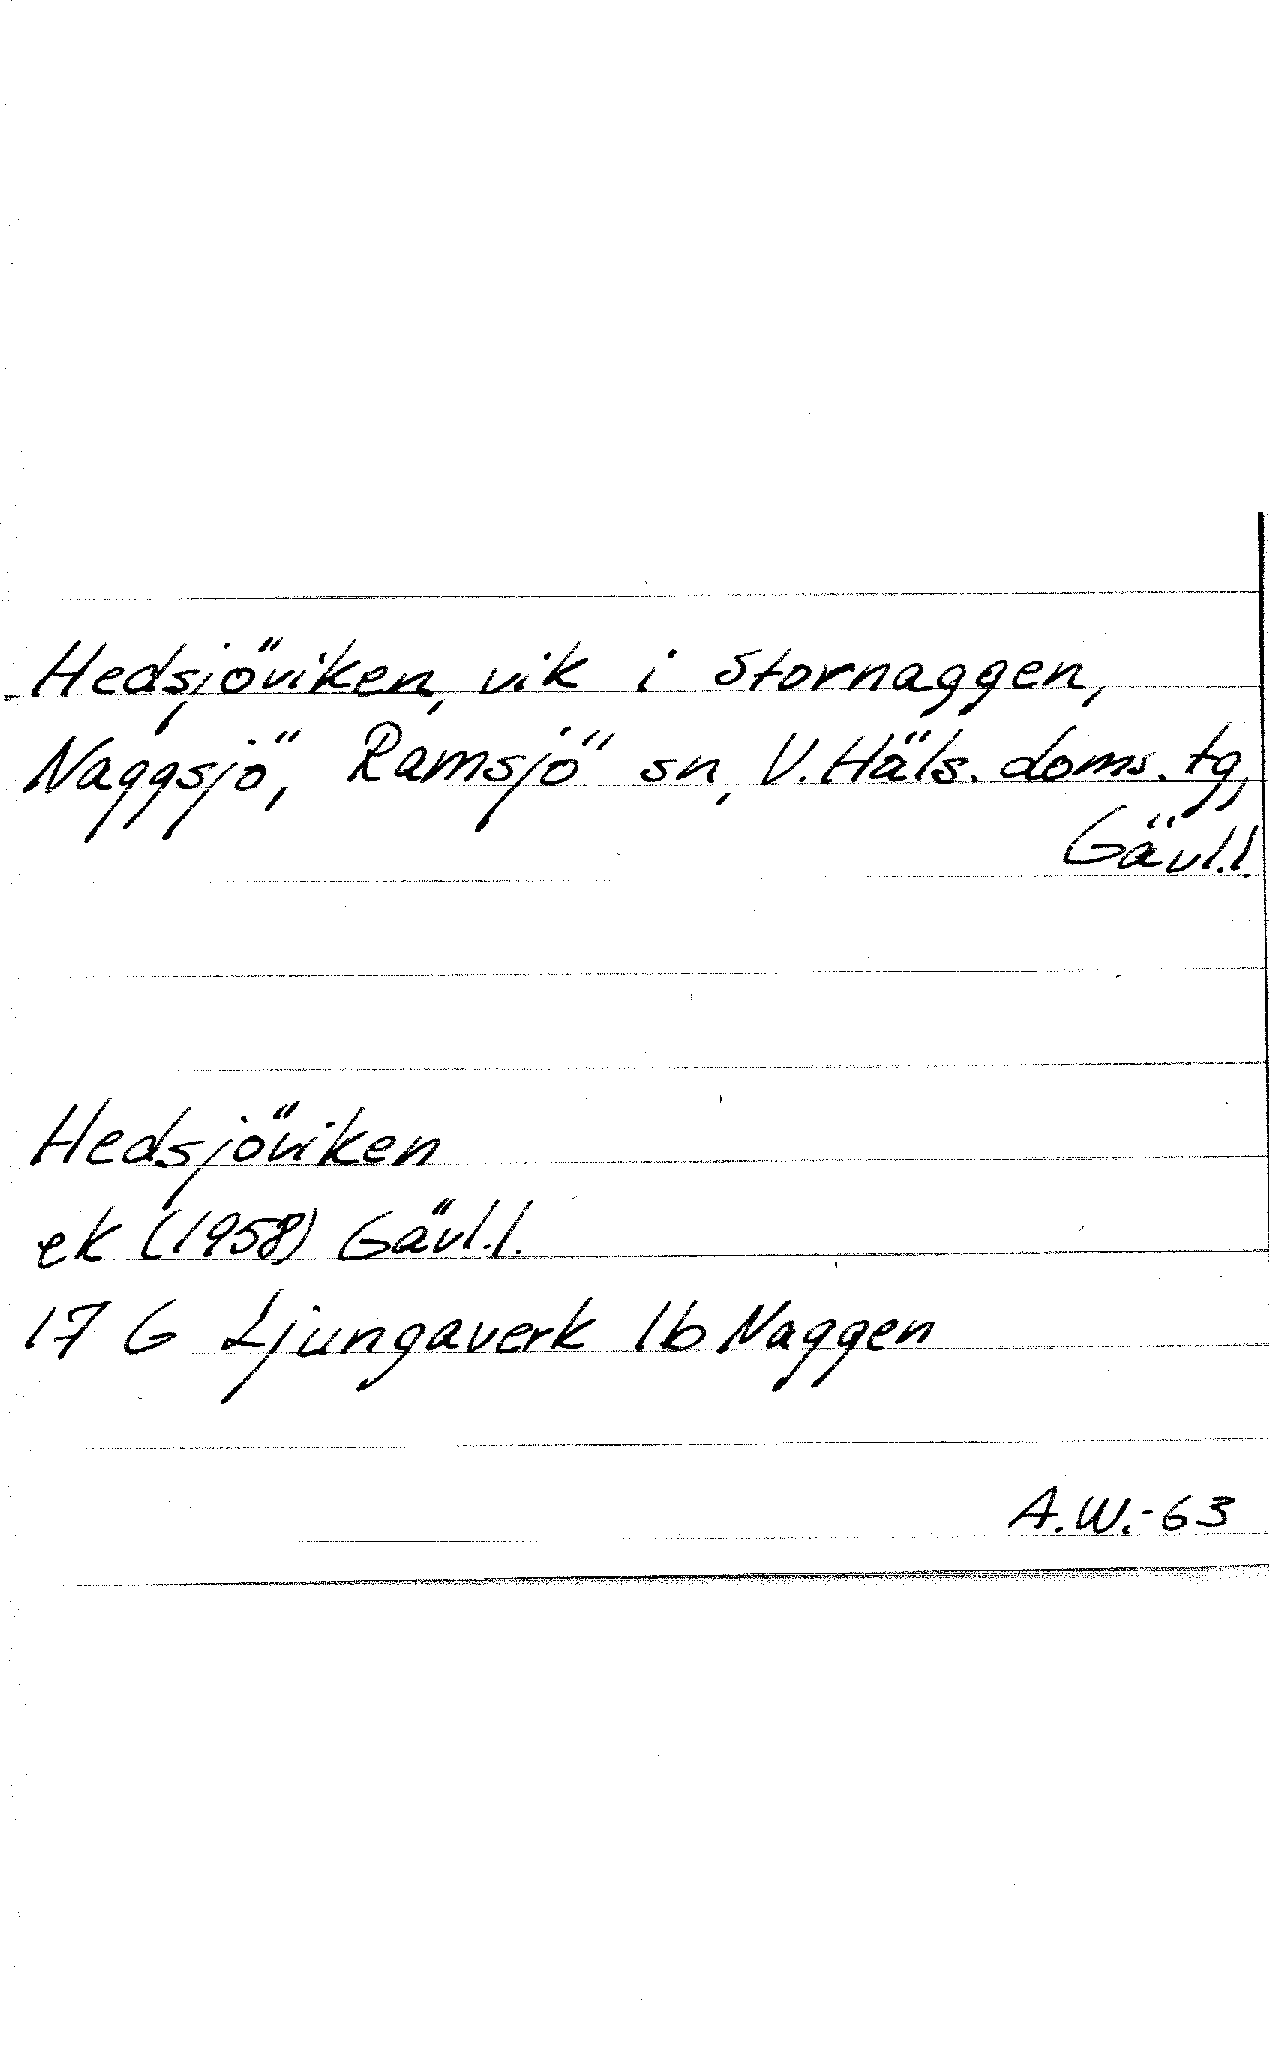 Hedsjöviken, vik i Stornaggen,
Naggsjö, Ramsjö sn, V. Häls. doms. tg,
Gävl.l.
Hedsjöviken
ek (1958) Gävl.l.
17 G Ljungaverk 1b Naggen
A.W.-63